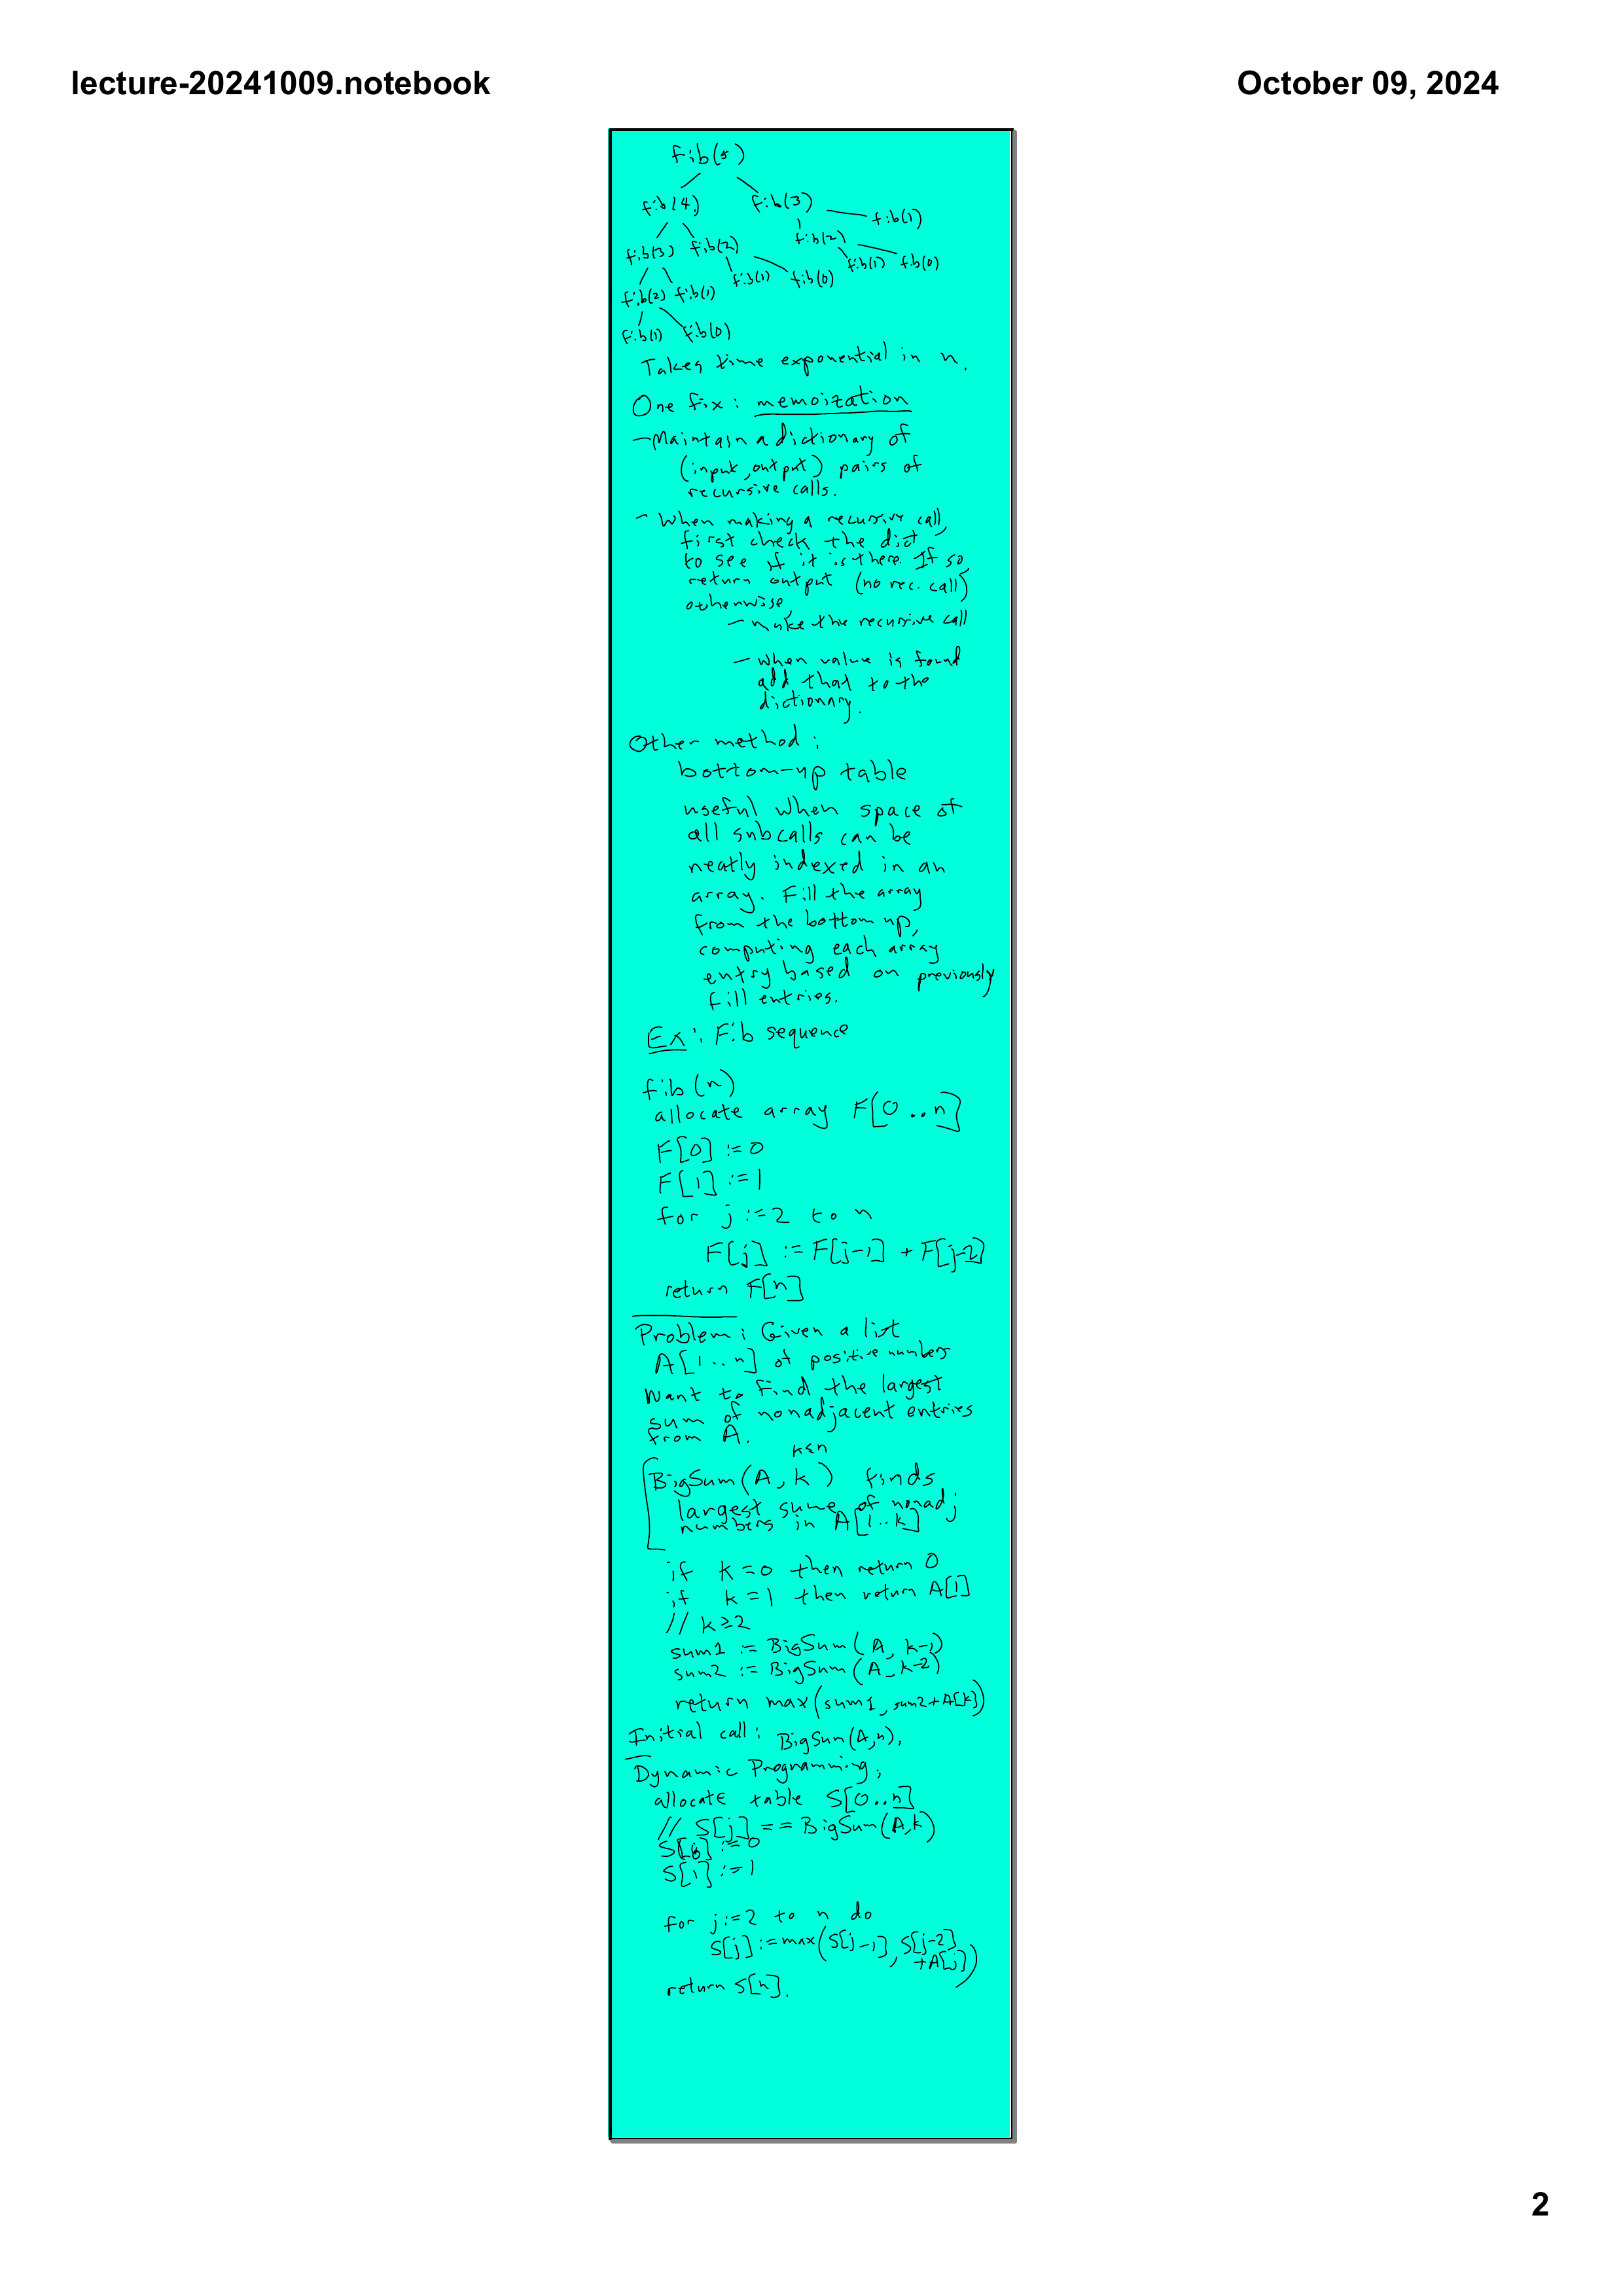 lecture-20241009.notebook
October 09, 2024
fib(5)
fib(4) fib(3)
fib(1)
fib(3) fib(2) fib(2)
fib(1) fib(0) fib(1) fib(0)
fib(2) fib(1)
fib(1) fib(0)
Takes time exponential in n.
One fix: memoization
- Maintain a dictionary of
(input, output) pairs of
recursive calls.
- When making a recursive call,
first check the dict
to see if it is there. If so,
return output (no rec. call)
otherwise,
- make the recursive call
- when value is found
add that to the
dictionary.
Other method:
bottom-up table
useful when space of
all subcalls can be
neatly indexed in an
array. Fill the array
from the bottom up,
computing each array
entry based on previously
fill entries.
Ex: Fib sequence
fib(n)
allocate array F[0..n]
F[0] := 0
F[1] := 1
for j := 2 to n
F[j] := F[j-1] + F[j-2]
return F[n]
Problem: Given a list
A[1..n] of positive numbers
Want to find the largest
sum of nonadjacent entries
from A.
k≤n
BigSum(A, k) finds
largest sume of nonadj
numbers in A[1..k]
if k=0 then return 0
if k=1 then return A[1]
// k≥2
sum1 := BigSum(A, k-1)
sum2 := BigSum(A, k-2)
return max(sum1, sum2+A[k])
Initial call: BigSum(A,n).
Dynamic Programming:
allocate table S[0..n]
// S[j] == BigSum(A,k)
S[0] := 0
S[1] := 1
for j := 2 to n do
S[j] := max(S[j-1], S[j-2]
+A[j])
return S[n].
2